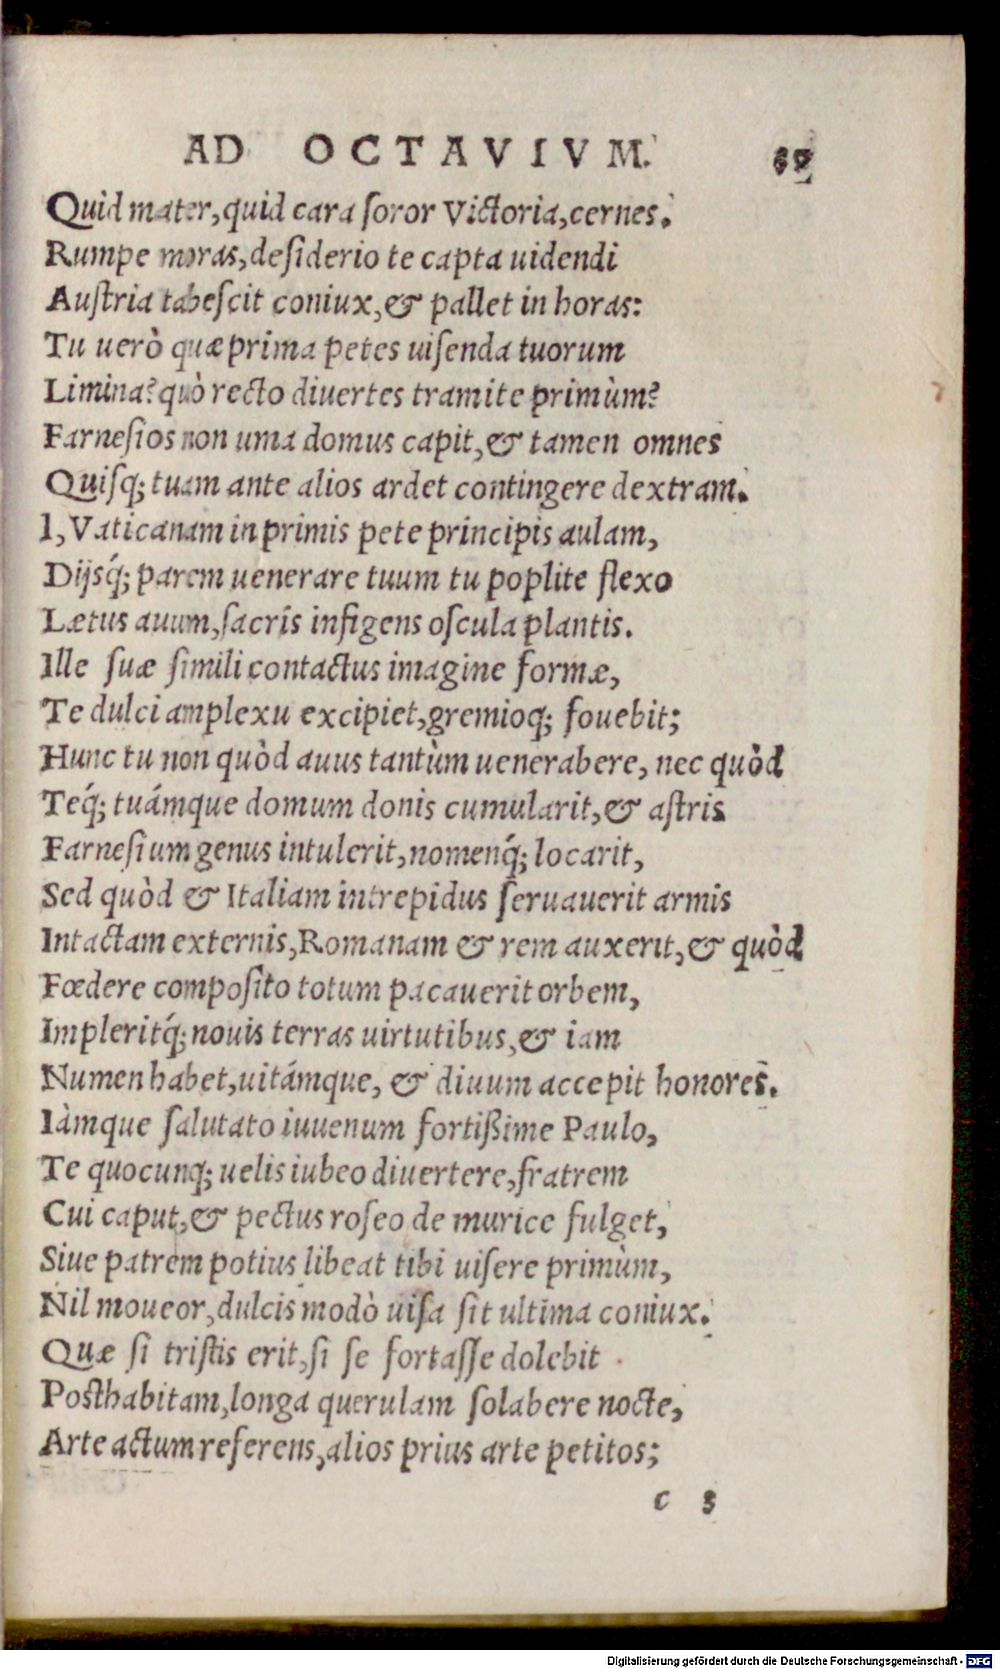 AD OCTAVIVM.
Quid mater, quid cara ſoror Victoria, cernes.
Rumpe moras, deſiderio te capta uidendi
Auſtria tabeſcit coniux, & pallet in horas:
Tu uerò quæ prima petes uiſenda tuorum
Limina? quò recto diuertes tramite primùm?
Farneſios non uma domus capit, & tamen omnes
Quiſq; tuam ante alios ardet contingere dextram.
I, Vaticanam in primis pete principis aulam,
Dijsq́; parem uenerare tuum tu poplite flexo
Lætus auum, ſacris infigens oſcula plantis.
Ille ſuæ ſimili contactus imagine formæ,
Te dulci amplexu excipiet, gremioq; fouebit;
Hunc tu non quòd auus tantùm uenerabere, nec quòd
Teq́; tuámque domum donis cumularit, & aſtris
Farneſium genus intulerit, nomenq́; locarit,
Sed quòd & Italiam intrepidus ſeruauerit armis
Intactam externis, Romanam & rem auxerit, & quòd
Fœdere compoſito totum pacauerit orbem,
Impleritq́; nouis terras uirtutibus, & iam
Numen habet, uitámque, & diuum accepit honores.
Iàmque ſalutato iuuenum fortißime Paulo,
Te quocunq; uelis iubeo diuertere, fratrem
Cui caput, & pectus roſeo de murice fulget,
Siue patrem potius libeat tibi uiſere primùm,
Nil moueor, dulcis modò uiſa ſit ultima coniux.
Quæ ſi triſtis erit, ſi ſe fortaſſe dolebit
Poſthabitam, longa querulam ſolabere nocte,
Arte actum referens, alios prius arte petitos;
c 3
Digitalisierung gefördert durch die Deutsche Forschungsgemeinschaft - DFG